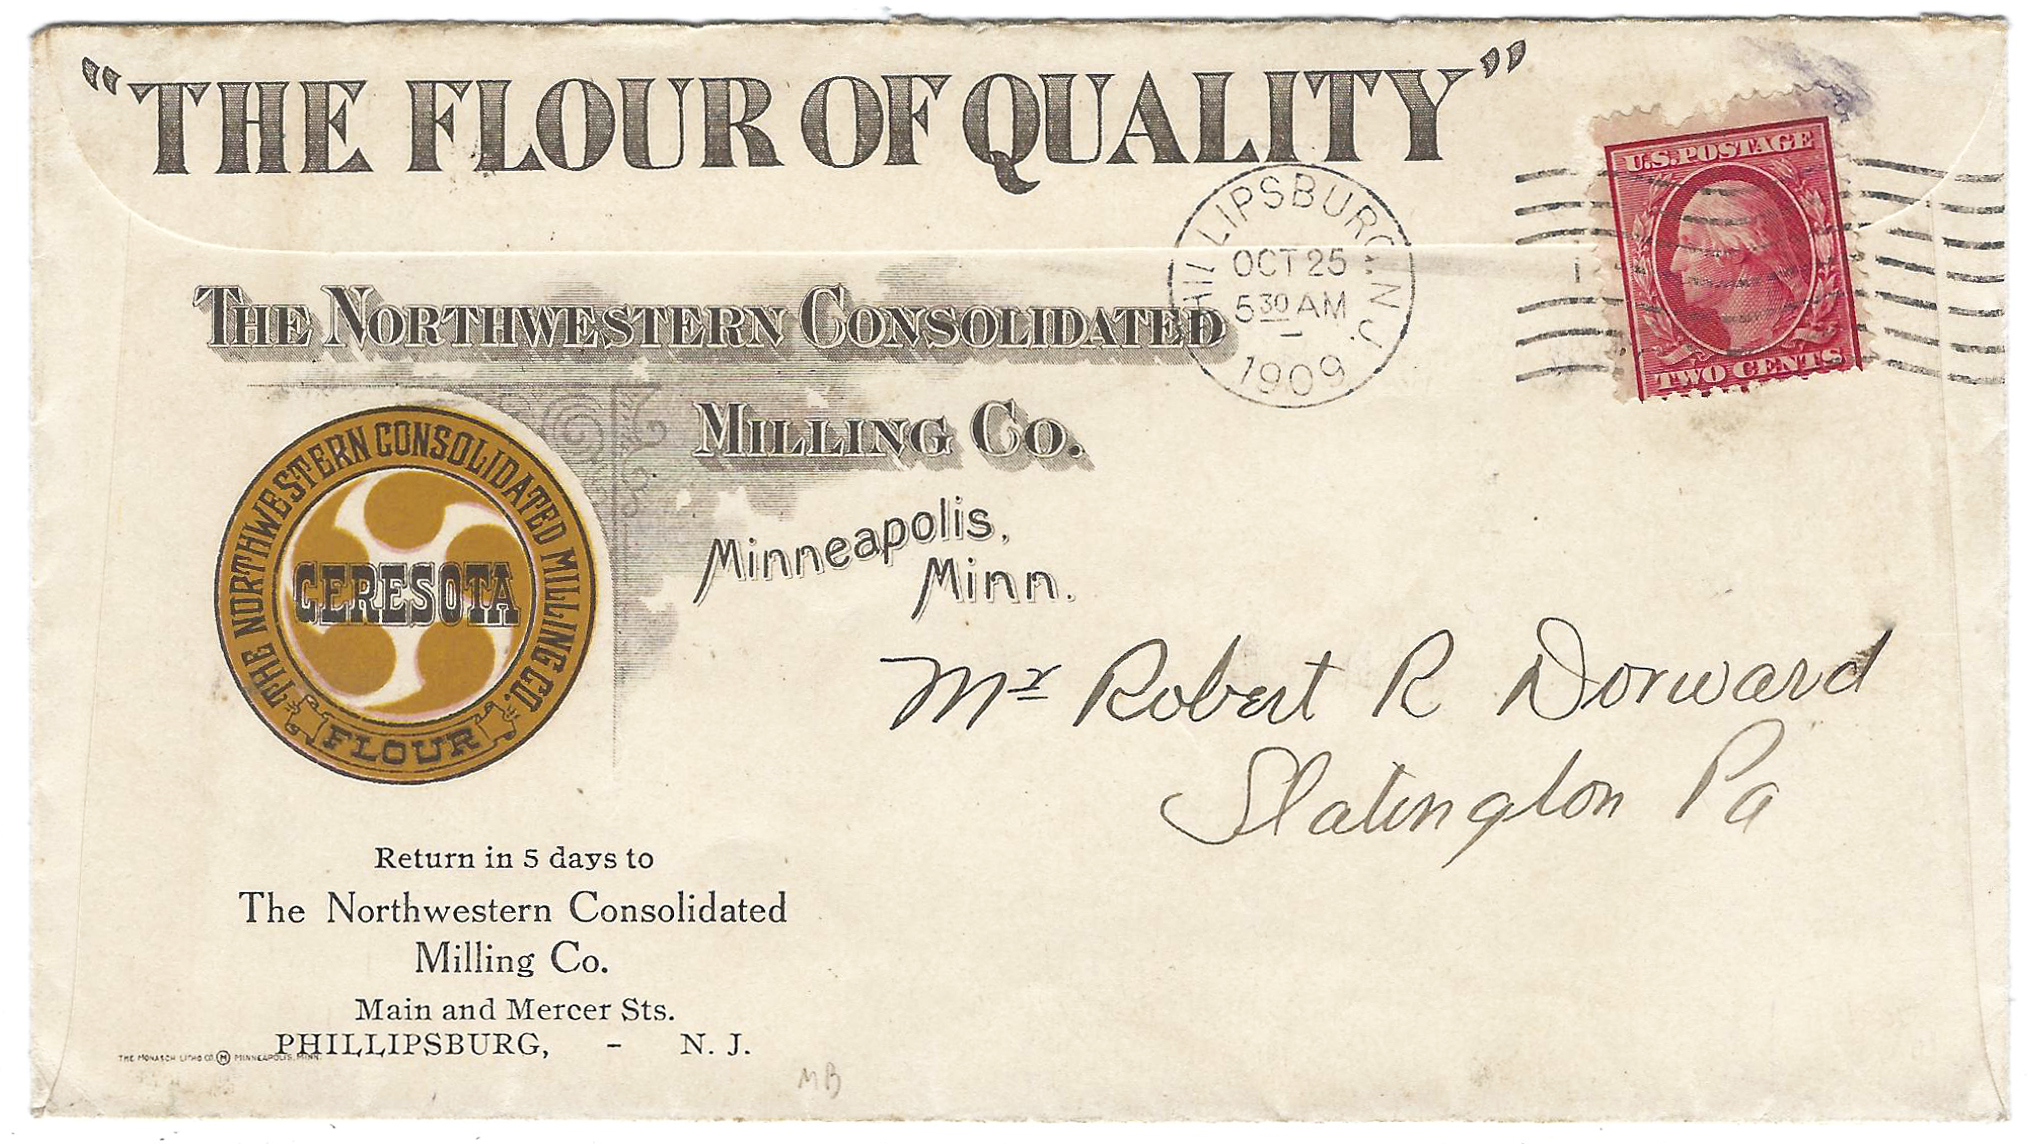 "THE FLOUR OF QUALITY"
U.S. POSTAGE
TWO CENTS
PHILLIPSBURG, N.J.
OCT 25
5 30 AM
1909
THE NORTHWESTERN CONSOLIDATED
MILLING CO.
Minneapolis,
Minn.
THE NORTHWESTERN CONSOLIDATED MILLING CO.
CERESOTA
FLOUR
Mr Robert R Dorward
Slatington Pa
Return in 5 days to
The Northwestern Consolidated
Milling Co.
Main and Mercer Sts.
PHILLIPSBURG, - N. J.
THE MONASCH LITHO CO. M MINNEAPOLIS, MINN.
MB